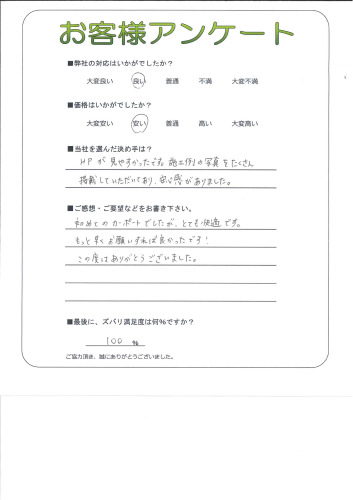 お客様アンケート
■弊社の対応はいかがでしたか?
大変良い 良い 普通 不満 大変不満
■価格はいかがでしたか?
大変安い 安い 普通 高い 大変高い
■当社を選んだ決め手は?
HPが見やすかったです。施工例の写真をたくさん
掲載していただいており、安心感がありました。
■ご感想・ご要望などをお書き下さい。
初めてのカーポートでしたが、とても快適です。
もっと早くお願いすれば良かったです!
この度はありがとうございました。
■最後に、ズバリ満足度は何%ですか?
100 %
ご協力頂き、誠にありがとうございました。